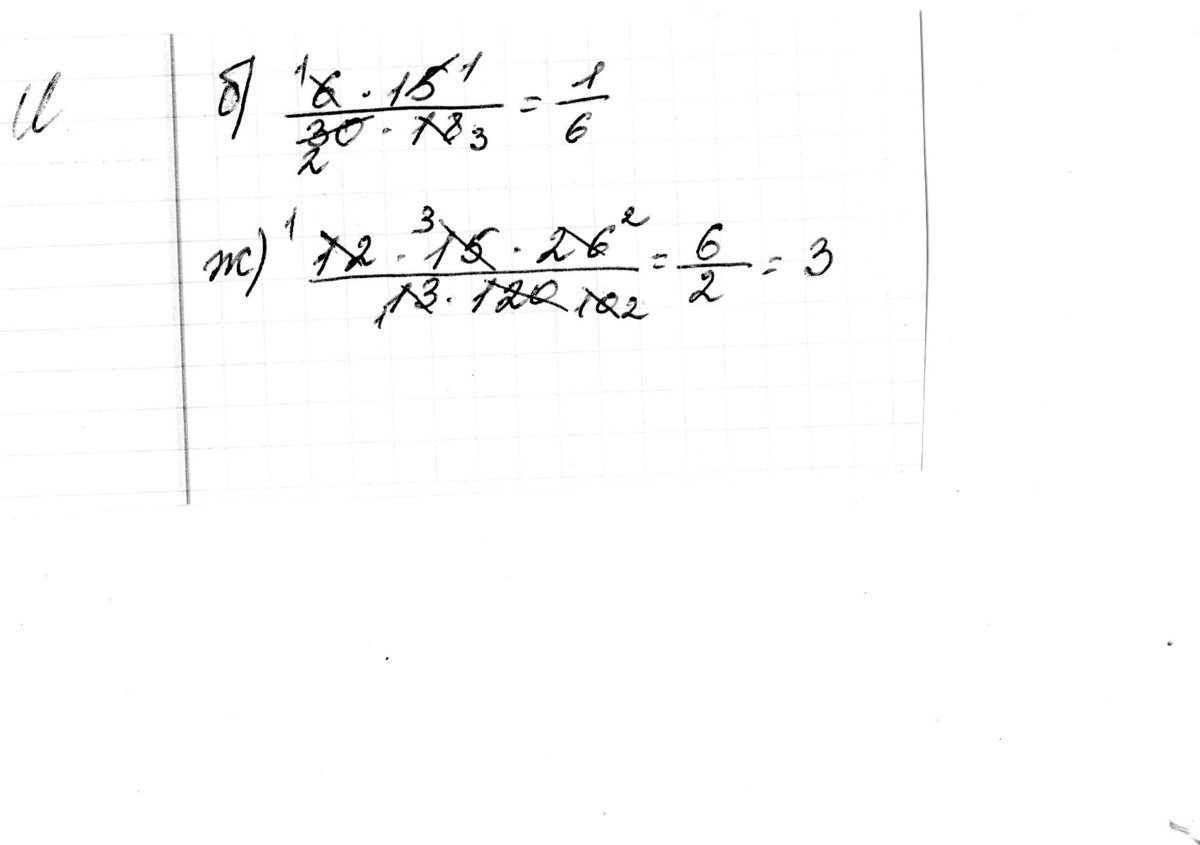 б) ¹6 · 15¹ / 30₂ · 18₃ = 1/6
ж) ¹12 · ³15 · 26² / ₁13 · 120 10₂ = 6/2 = 3